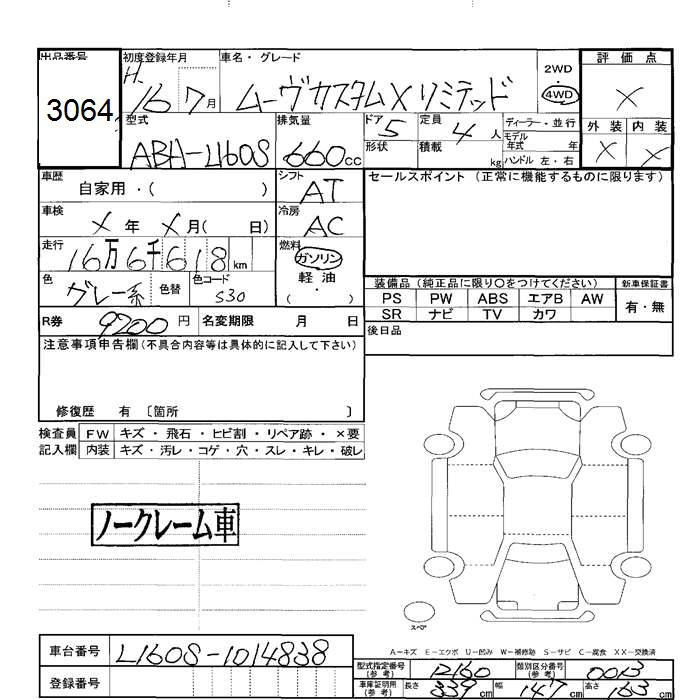 出品番号
3064
初度登録年月
H.
16 7月
車名・グレード
ムーヴカスタムX リミテッド
2WD
・
4WD
評価点
×
外装 内装
× ×
型式
ABA-L160S
排気量
660cc
ドア 5
形状
定員 4 人
積載 kg
ディーラー・並行
モデル年式 年
ハンドル 左・右
車歴
自家用・( )
シフト
AT
セールスポイント (正常に機能するものに限ります)
車検
×年 ×月( 日)
冷房
AC
走行
16万6千618km
燃料
ガソリン
軽油
・
( )
色
グレー系
色替
色コード
S30
装備品 (純正品に限り〇をつけてください)
新車保証書
PS PW ABS エアB AW
SR ナビ TV カワ
有・無
R券 9200円
名変期限 月 日
後日品
注意事項申告欄(不具合内容等は具体的に記入して下さい)
修復歴 有 〔箇所 〕
検査員 FW キズ・飛石・ヒビ割・リペア跡・×要
記入欄 内装 キズ・汚レ・コゲ・穴・スレ・キレ・破レ
ノークレーム車
スペア
A-キズ E-エクボ U-凹み W-補修跡 S-サビ C-腐食 XX-交換済
車台番号 L160S-1014838
登録番号
型式指定番号(参考) 12160
類別区分番号(参考) 0013
車庫証明用(参考) 長さ 339cm 幅 147cm 高さ 163cm